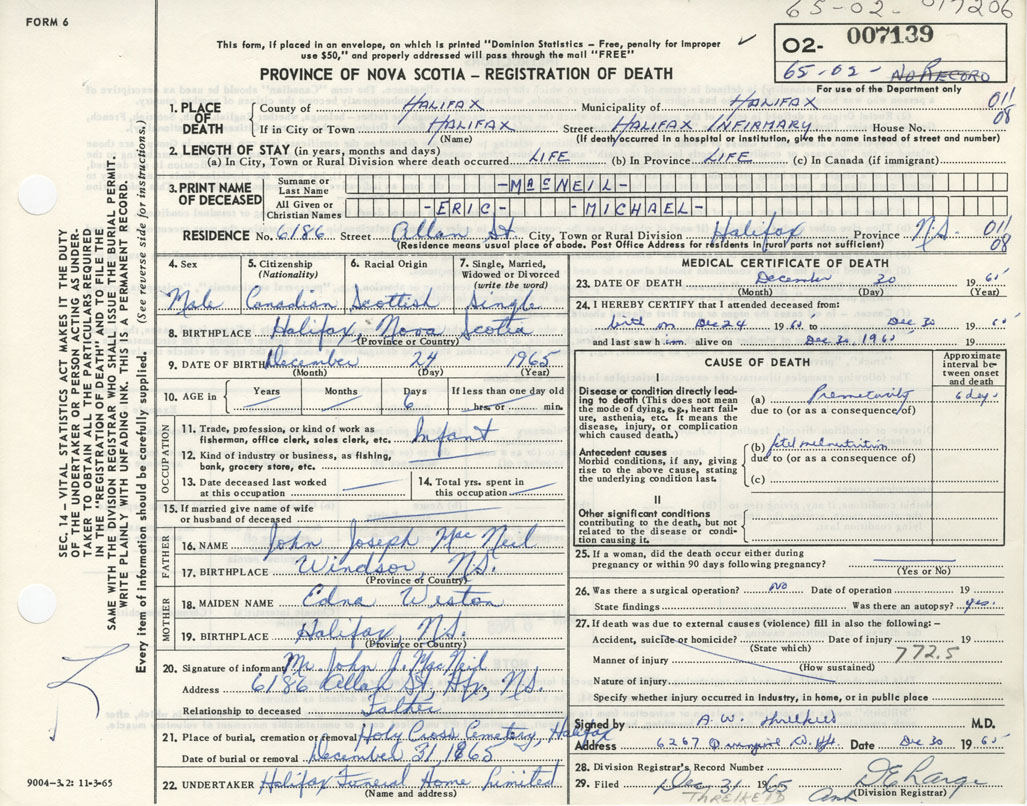 65-02-017206
FORM 6
This form, if placed in an envelope, on which is printed "Dominion Statistics – Free, penalty for improper
use $50," and properly addressed will pass through the mail "FREE"
PROVINCE OF NOVA SCOTIA – REGISTRATION OF DEATH
02- 007139
65-02- No Record
For use of the Department only
1. PLACE OF DEATH
County of HALIFAX Municipality of HALIFAX 011
If in City or Town HALIFAX Street HALIFAX INFIRMARY House No. 08
(Name) (If death occurred in a hospital or institution, give the name instead of street and number)
2. LENGTH OF STAY (in years, months and days)
(a) In City, Town or Rural Division where death occurred LIFE (b) In Province LIFE (c) In Canada (if immigrant)
3. PRINT NAME OF DECEASED
Surname or Last Name -MACNEIL-
All Given or Christian Names -ERIC- -MICHAEL-
RESIDENCE No. 6186 Street Allan St. City, Town or Rural Division Halifax Province N.S. 011
(Residence means usual place of abode. Post Office Address for residents in rural parts not sufficient) 08
4. Sex Male
5. Citizenship (Nationality) Canadian
6. Racial Origin Scottish
7. Single, Married, Widowed or Divorced (write the word) Single
8. BIRTHPLACE Halifax, Nova Scotia
(Province or Country)
9. DATE OF BIRTH December 24 1965
(Month) (Day) (Year)
10. AGE in Years Months Days If less than one day old
6 hrs. or min.
OCCUPATION
11. Trade, profession, or kind of work as Infant
fisherman, office clerk, sales clerk, etc.
12. Kind of industry or business, as fishing,
bank, grocery store, etc.
13. Date deceased last worked at this occupation
14. Total yrs. spent in this occupation
15. If married give name of wife
or husband of deceased
FATHER
16. NAME John Joseph MacNeil
17. BIRTHPLACE Windsor, N.S.
(Province or Country)
MOTHER
18. MAIDEN NAME Edna Weston
19. BIRTHPLACE Halifax, N.S.
(Province or Country)
20. Signature of informant Mr. John J. MacNeil
Address 6186 Allan St., Hfx, N.S.
Relationship to deceased Father
21. Place of burial, cremation or removal Holy Cross Cemetery, Halifax
Date of burial or removal December 31, 1865
22. UNDERTAKER Halifax Funeral Home Limited
(Name and address)
MEDICAL CERTIFICATE OF DEATH
23. DATE OF DEATH December 30 1965
(Month) (Day) (Year)
24. I HEREBY CERTIFY that I attended deceased from:
birth on Dec 24 1965 to Dec 30 1965
and last saw him alive on Dec 30, 1965 19
CAUSE OF DEATH
Approximate interval between onset and death
I
Disease or condition directly leading to death (This does not mean the mode of dying, e.g., heart failure, asthenia, etc. It means the disease, injury, or complication which caused death.)
(a) Prematurity 6 days
due to (or as a consequence of)
Antecedent causes
Morbid conditions, if any, giving rise to the above cause, stating the underlying condition last.
(b) fetal malnutrition
due to (or as a consequence of)
(c)
II
Other significant conditions
contributing to the death, but not related to the disease or condition causing it.
25. If a woman, did the death occur either during
pregnancy or within 90 days following pregnancy?
(Yes or No)
26. Was there a surgical operation? no Date of operation 19
State findings Was there an autopsy? yes.
27. If death was due to external causes (violence) fill in also the following:–
Accident, suicide or homicide? Date of injury 19
(State which) 772.5
Manner of injury
(How sustained)
Nature of injury
Specify whether injury occurred in industry, in home, or in public place
Signed by A. W. Threlkeld M.D.
Address 6267 Hfx. Date Dec 30 1965
28. Division Registrar's Record Number
29. Filed Dec 31 1965
THRELKELD
(Division Registrar)
SEC. 14 – VITAL STATISTICS ACT MAKES IT THE DUTY
OF THE UNDERTAKER OR PERSON ACTING AS UNDER-
TAKER TO OBTAIN ALL THE PARTICULARS REQUIRED
IN THE "REGISTRATION OF DEATH" AND TO FILE THE
SAME WITH THE DIVISION REGISTRAR WHO SHALL ISSUE THE BURIAL PERMIT
WRITE PLAINLY WITH UNFADING INK. THIS IS A PERMANENT RECORD.
Every item of information should be carefully supplied. (See reverse side for instructions.)
9004–3.2: 11-3-65